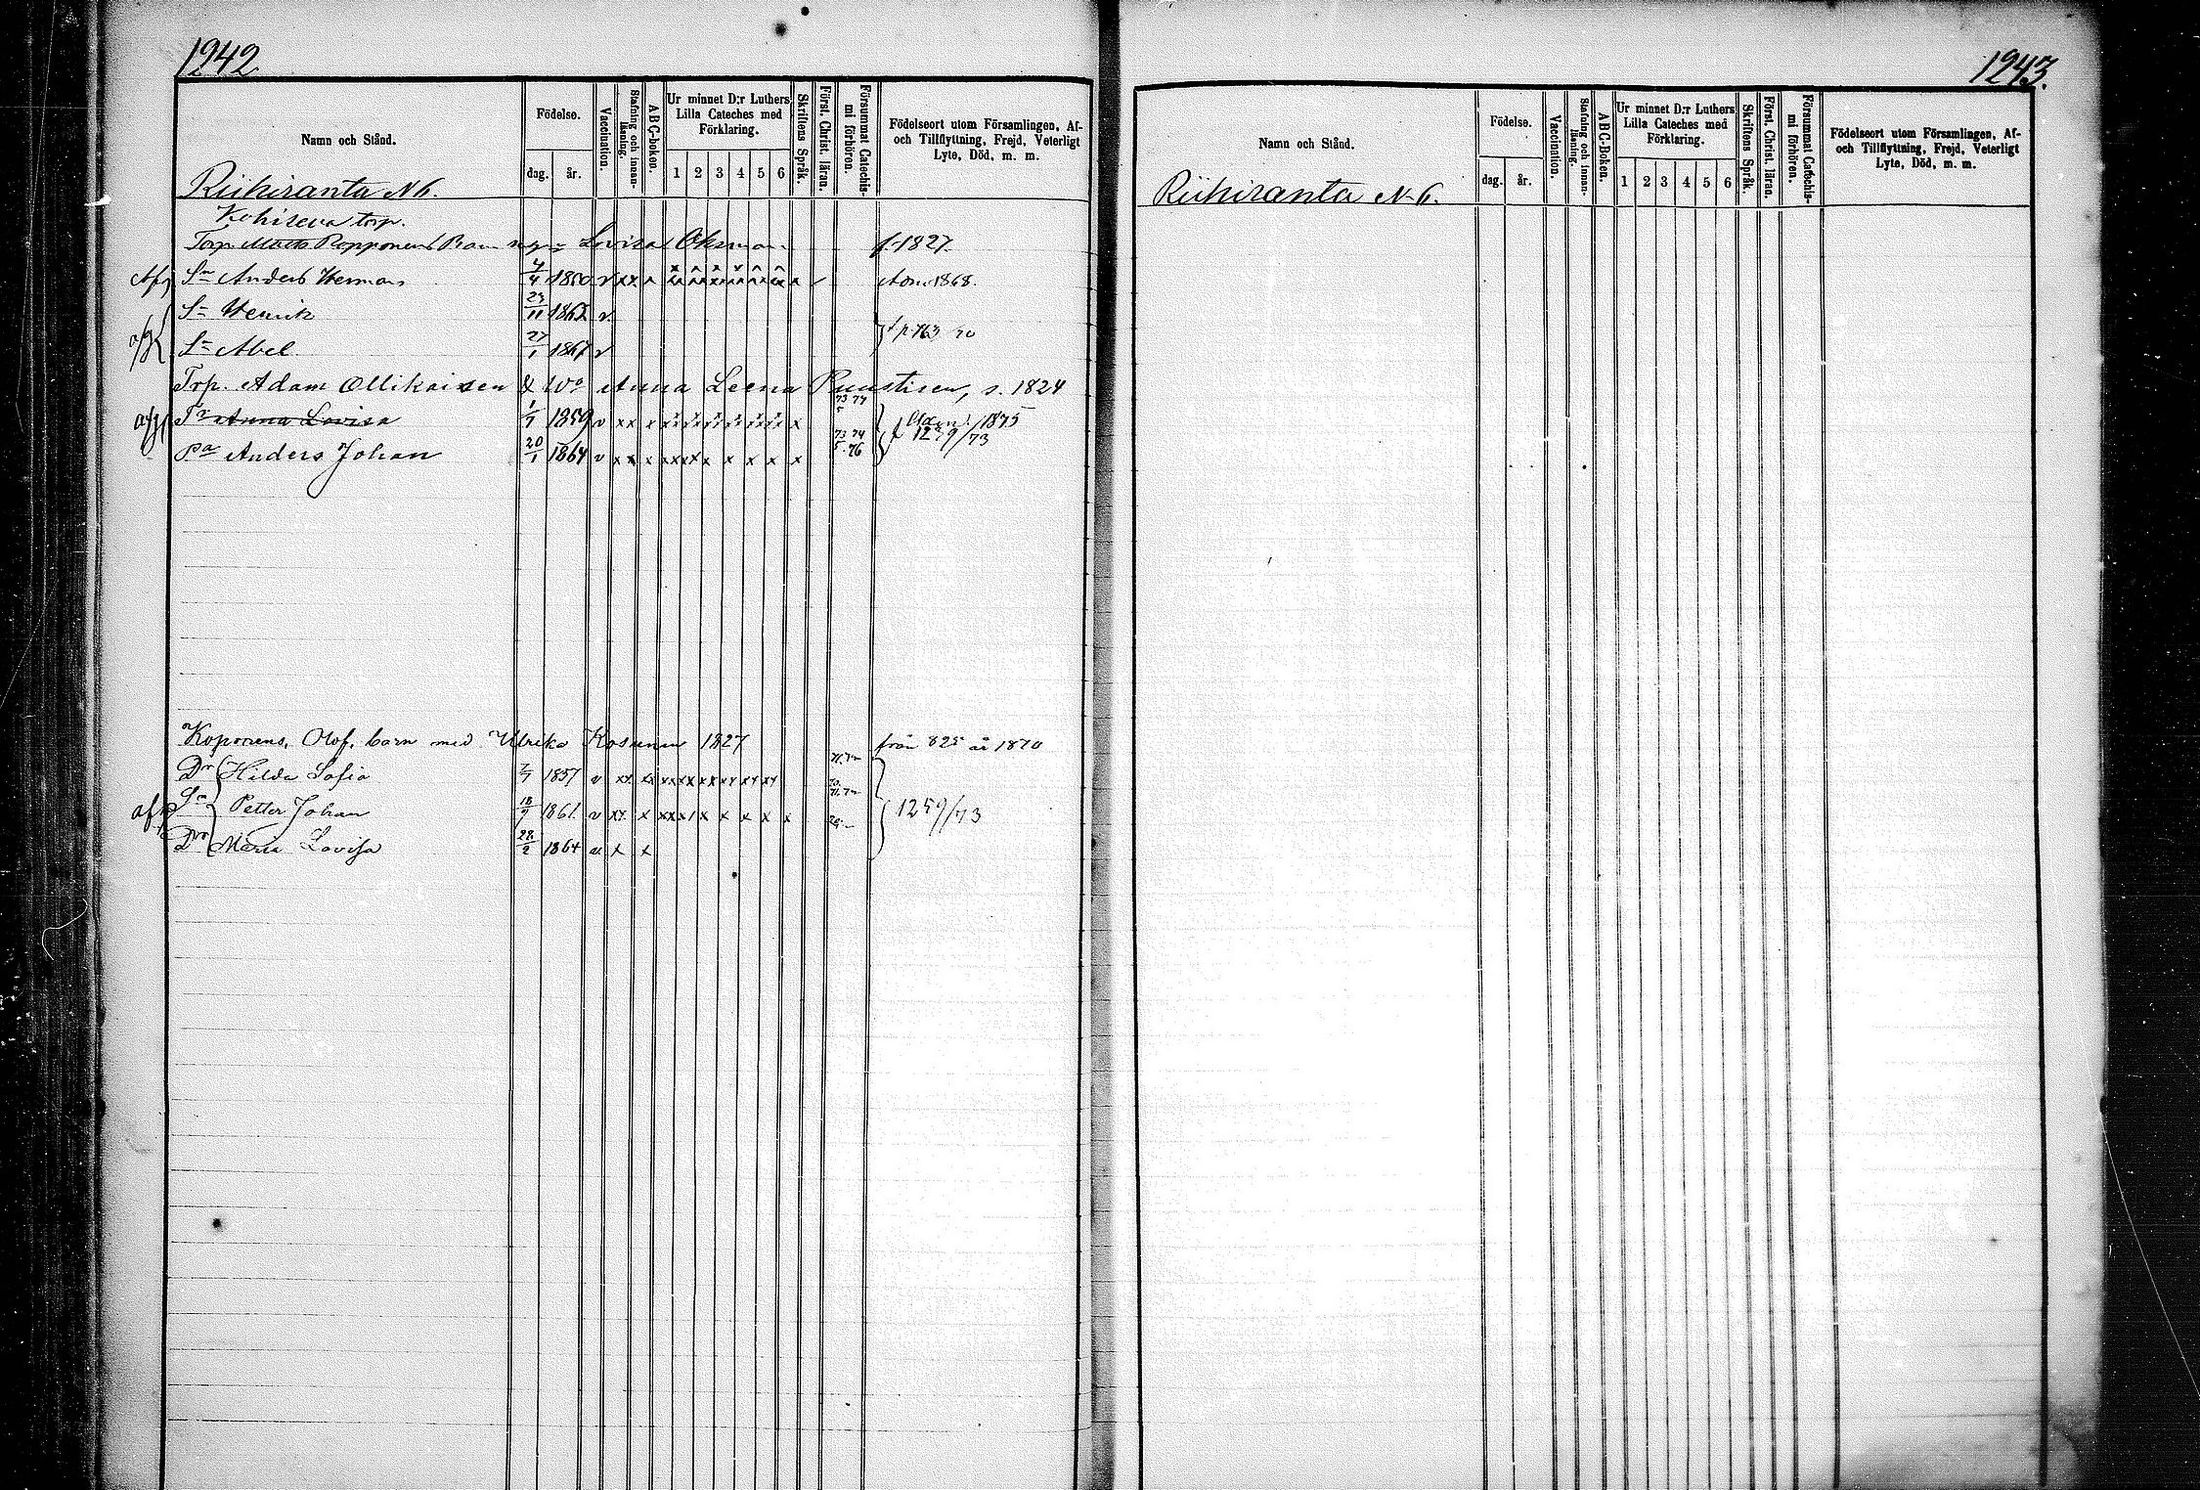 1242
Namn och Stånd.
Födelse.
dag. år.
Vaccination.
Stafning och innan-läsning.
ABC-boken.
Ur minnet D:r Luthers Lilla Cateches med Förklaring.
1 2 3 4 5 6
Skriftens Språk.
Först. Christ. läran.
Försummat Catechis-mi förhören.
Födelseort utom Församlingen, Af-
och Tillflyttning, Frejd, Veterligt
Lyte, Död, m. m.
Riihiranta N 6.
torp.
Torp. Lovisa Oksman f. 1827
Sn Anders Herman 4/4 1850 v Adm. 1868.
Sn Henrik 23/11 1862 v
Sn Abel 27/1 1867 v
Trp. Adam Ollikaisen & Wa Anna Leena Puustisen, s. 1824
Anna Lovisa 1859 v 73 74 1875
Pa Anders Johan 20/1 1864 v 1259/73
Koponens, Olof, barn med Ulrika Kosunen 1827 från 825 år 1870
Dr Hilda Sofia 1857 v
Sn Petter Johan 18/9 1861 v 1259/73
Dr Maria Lovisa 28/2 1864 v
1243.
Namn och Stånd.
Födelse.
dag. år.
Vaccination.
Stafning och innan-läsning.
ABC-Boken.
Ur minnet D:r Luthers Lilla Cateches med Förklaring.
1 2 3 4 5 6
Skriftens Språk.
Först. Christ. läran.
Försummat Catechis-mi förhören.
Födelseort utom Församlingen, Af-
och Tillflyttning, Frejd, Veterligt
Lyte, Död, m. m.
Riihiranta N 6.